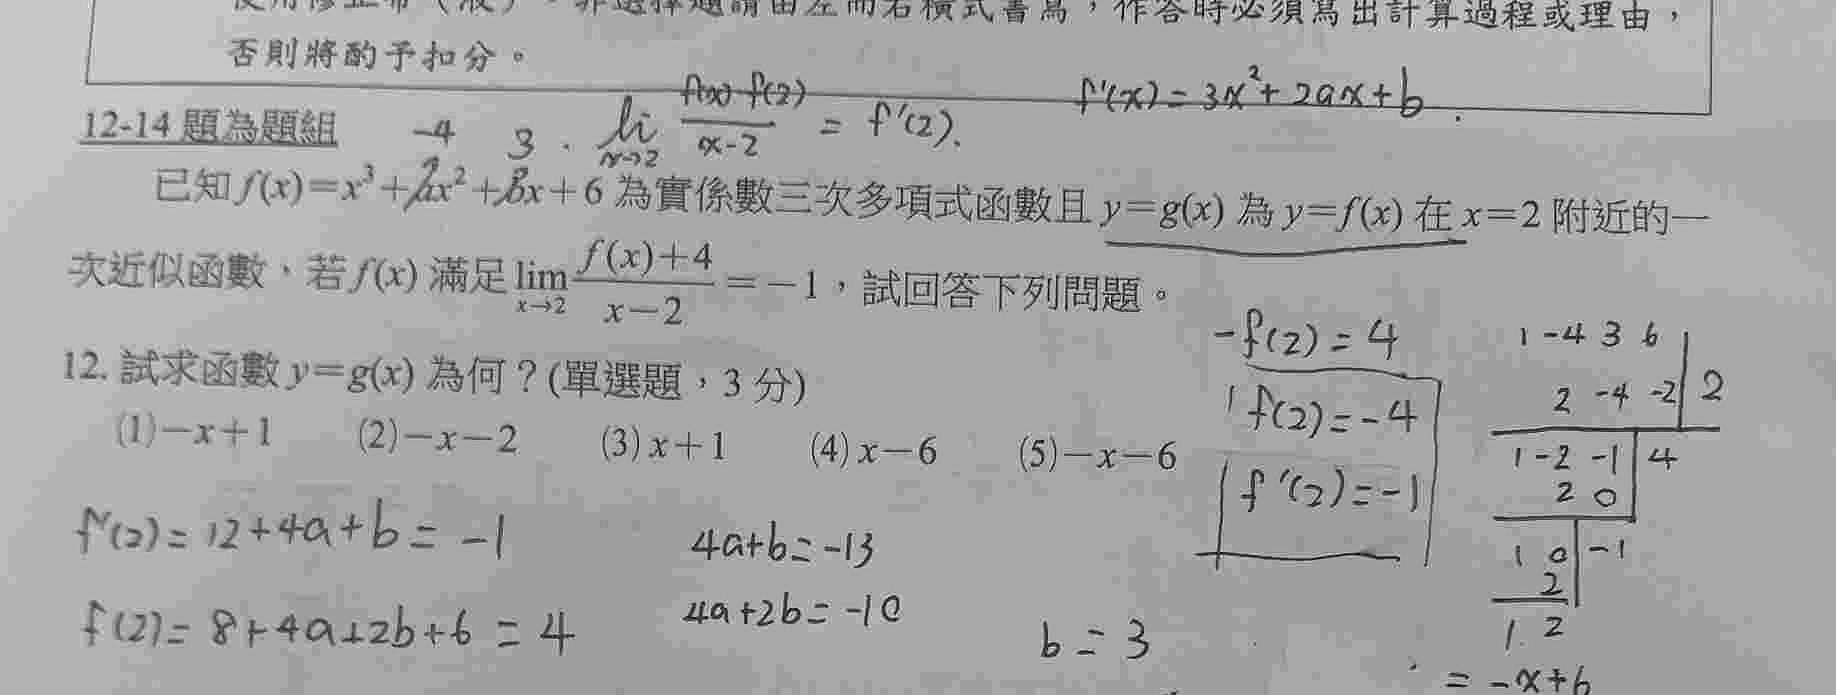 使用修正帶（液）。非選擇題請由左而右橫式書寫，作答時必須寫出計算過程或理由，
否則將酌予扣分。
f'(x)=3x²+2ax+b
12-14 題為題組
-4 3 . lim x→2 f(x)-f(2) / x-2 = f'(2).
已知 f(x)=x³+ax²+bx+6 為實係數三次多項式函數且 y=g(x) 為 y=f(x) 在 x=2 附近的一
次近似函數、若 f(x) 滿足 lim x→2 f(x)+4 / x-2 = -1，試回答下列問題。
12. 試求函數 y=g(x) 為何？(單選題，3 分)
(1)-x+1 (2)-x-2 (3)x+1 (4)x-6 (5)-x-6
-f(2)=4
f(2)=-4
f'(2)=-1
1 -4 3 6
2 -4 -2 2
1 -2 -1 4
2 0
1 0 -1
2
1 2
= -x+6
f'(2)=12+4a+b=-1
4a+b=-13
f(2)=8+4a+2b+6=4
4a+2b=-10
b=3